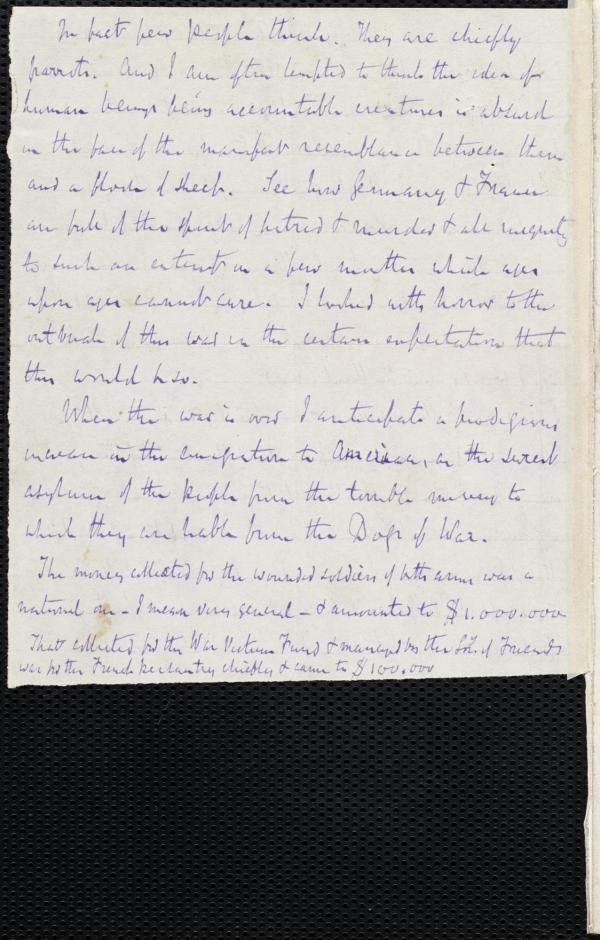 In fact few people think. They are chiefly
parrots. And I am often tempted to think the idea of
human beings being accountable creatures is absurd
in the face of the manifest resemblance between them
and a flock of sheep. See how Germany & France
are full of the spirit of hatred & murder & all
to such an extent in a few months which ages
upon ages cannot cure. I looked with horror to the
outbreak of this war in the certain expectation that
this would be so.
When the war is over I anticipate a prodigious
increase in the emigration to America, as the
asylum of the people from the terrible misery to
which they are liable from the Dogs of War.
The money collected for the wounded soldiers of both arms was a
national one - I mean very general - & amounted to $1.000.000
That collected for the War Victims Fund & managed by the Soc. of Friends
was for the French Peasantry chiefly & came to $100.000